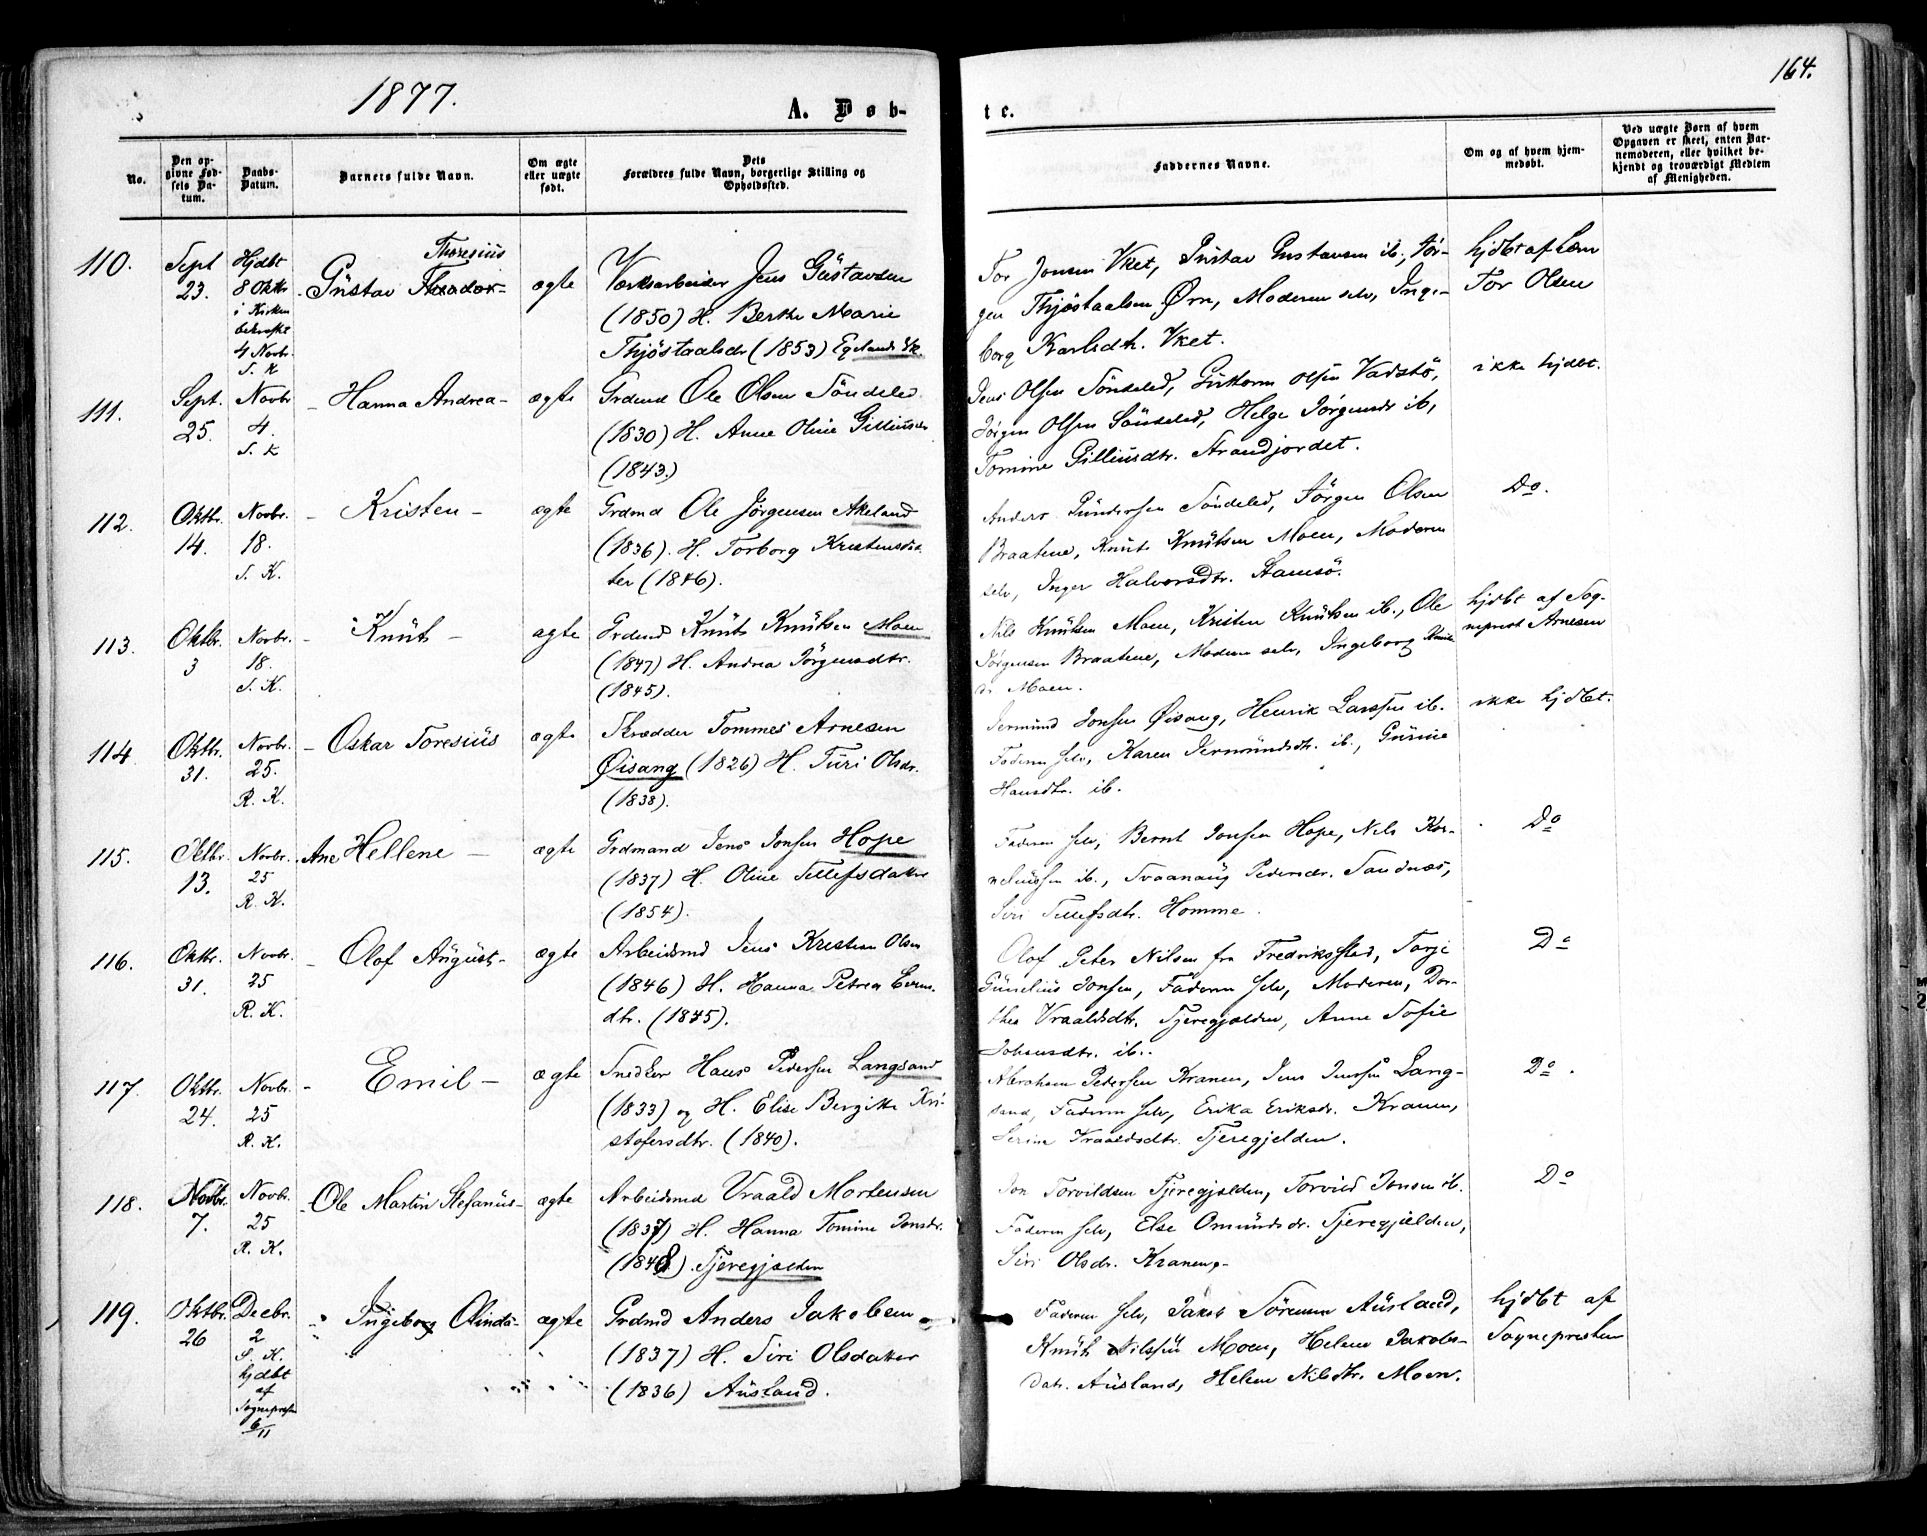 1877.
A. Døb-
te.
164.
No.
Den op-
givne Fød-
sels Da-
tum.
Daabs-
Datum.
Barnets fulde Navn.
Om ægte
eller uægte
født.
Dets
Forældres fulde Navn, borgerlige Stilling og
Opholdssted.
Faddernes Navne.
Om og af hvem hjem-
medøbt.
Ved uægte Børn af hvem
Opgaven er skeet, enten Bar-
nemoderen, eller hvilket be-
kjendt og troværdigt Medlem
af Menigheden.
110.
Sept
23.
Hjdbt
8 Oktbr
i Kirken
bekræftet
4 Novbr.
S. K
Thoresius
Güstav Theodor-
ægte
Værksarbeider Jens Güstavsen
(1850) H. Berthe Marie
Thjøstaalsdr (1853) Egelands Vk.
Tor Jonsen Vket, Gustav Gustavsen ib., Jør-
gen Thjøstaalsen Ørn, Moderen selv, Inge-
borg Karlsdtr. Vket.
hjdbt af Læn
Tor Olsen
111.
Sept.
25.
Novbr
4.
S. K
Hanna Andrea-
ægte
Grdmd Ole Olsen Søndeled
(1830) H. Anne Oline Gilliusdr
(1843.)
Jens Olsen Søndeled, Guttorm Olsen Vadstø,
Jørgen Olsen Søndeled, Helge Jörgensdr ib,
Tomine Gilliusdtr. Strandjordet.
ikke hjdbt.
112.
Oktbr.
14.
Novbr.
18.
S. K.
- Kristen -
ægte
Grdmd Ole Jørgensen Akeland
(1836). H. Torborg Kristensdat-
ter (1846).
Anders Gündersen Søndeled, Jørgen Olsen
Braatene, Knüt Knütsen Moen, Moderen
selv, Inger Halvorsdtr. Stamsö.
Do.
113.
Oktbr.
3
Novbr.
18.
S. K.
- Knüt -
ægte
Grdmd Knüt Knütsen Moen
(1847) H. Andrea Jörgensdtr.
(1845).
Nils Knütsen Moen, Kristen Knütsen ib., Ole
Jørgensen Braatene, Moderen selv, Ingeborg Knüts
dr. Moen.
hjdbt af Sog-
neprest Arnesen
114
Oktbr.
31.
Novbr.
25.
R. K.
- Oskar Toresiüs
ægte
Skrædder Tommes Arnesen
Øisang (1826) H. Türi Olsdr.
(1838).
Jermünd Jonsen Øisang, Henrik Larssen ib.
Faderen selv, Karen Jermündsdtr. ib.,
Hansdtr. ib.
ikke hjdbt.
115.
Oktbr.
13.
Novbr.
25
R. K.
Ane Hellene -
ægte
Grdmand Jens Jonsen Hope
(1837) H. Oline Tellefsdatter
(1854).
Faderen selv, Bernt Jonsen Hope, Nils Kor-
neliussen ib., Svaanaug Pedersdr. Sandnæs,
Siri Tellefsdtr. Homme.
Do
116.
Oktbr.
31.
Novbr.
25
R. K.
- Olaf Aügüst-
ægte
Arbeidsmd Jens Kristian Olsen
(1846) H. Hanna Petrea
dtr. (1845).
Olaf Peter Nilsen fra Fredriksstad, Torje
Günelius Jonsen, Faderen selv, Moderen, Dor-
thea Vraaldsdtr. Tjeregjælden, Anne Sofie
Johansdtr. ib.
Do
117.
Oktbr.
24.
Novbr.
25
R. K.
- Emil -
ægte
Snedker Hans Pedersen Langsand
(1833) og H. Elise Bergitte Kri-
stofersdtr. (1840).
Abraham Pedersen Kranen, Jens Jenssen Lang-
sand, Faderen selv, Erika Eriksdr. Kranen,
Serine Vraaldsdtr. Tjeregjelden.
Do.
118.
Novbr.
7.
Novbr.
25
R. K.
- Ole Martin Stefaniüs-
ægte
Arbeidsmd Vraald Mortensen
(1837) H. Hanna Tomine Jonsdr.
(1848). Tjeregjælden
Jon Torvildsen Tjeregjælden, Torvild Jonsen ib.
Faderen selv, Else Omündsdr. Tjeregjelden,
Siri Olsdr. Kranen.
Do
119.
Oktbr.
26
Decbr.
2
S. K.
hjdbt
af
Sognepræsten
6/11
Ingeborg Olinda-
ægte
Grdmd Anders Jakobsen
(1837) H. Siri Olsdatter
(1836) Aüsland.
Faderen selv, Jakob Sörensen Aüsland,
Knüt Nilssen Moen, Helene Jakobs-
datr. Aüsland, Helene Nilsdtr. Moen.
hjdbt af
Sognepresten